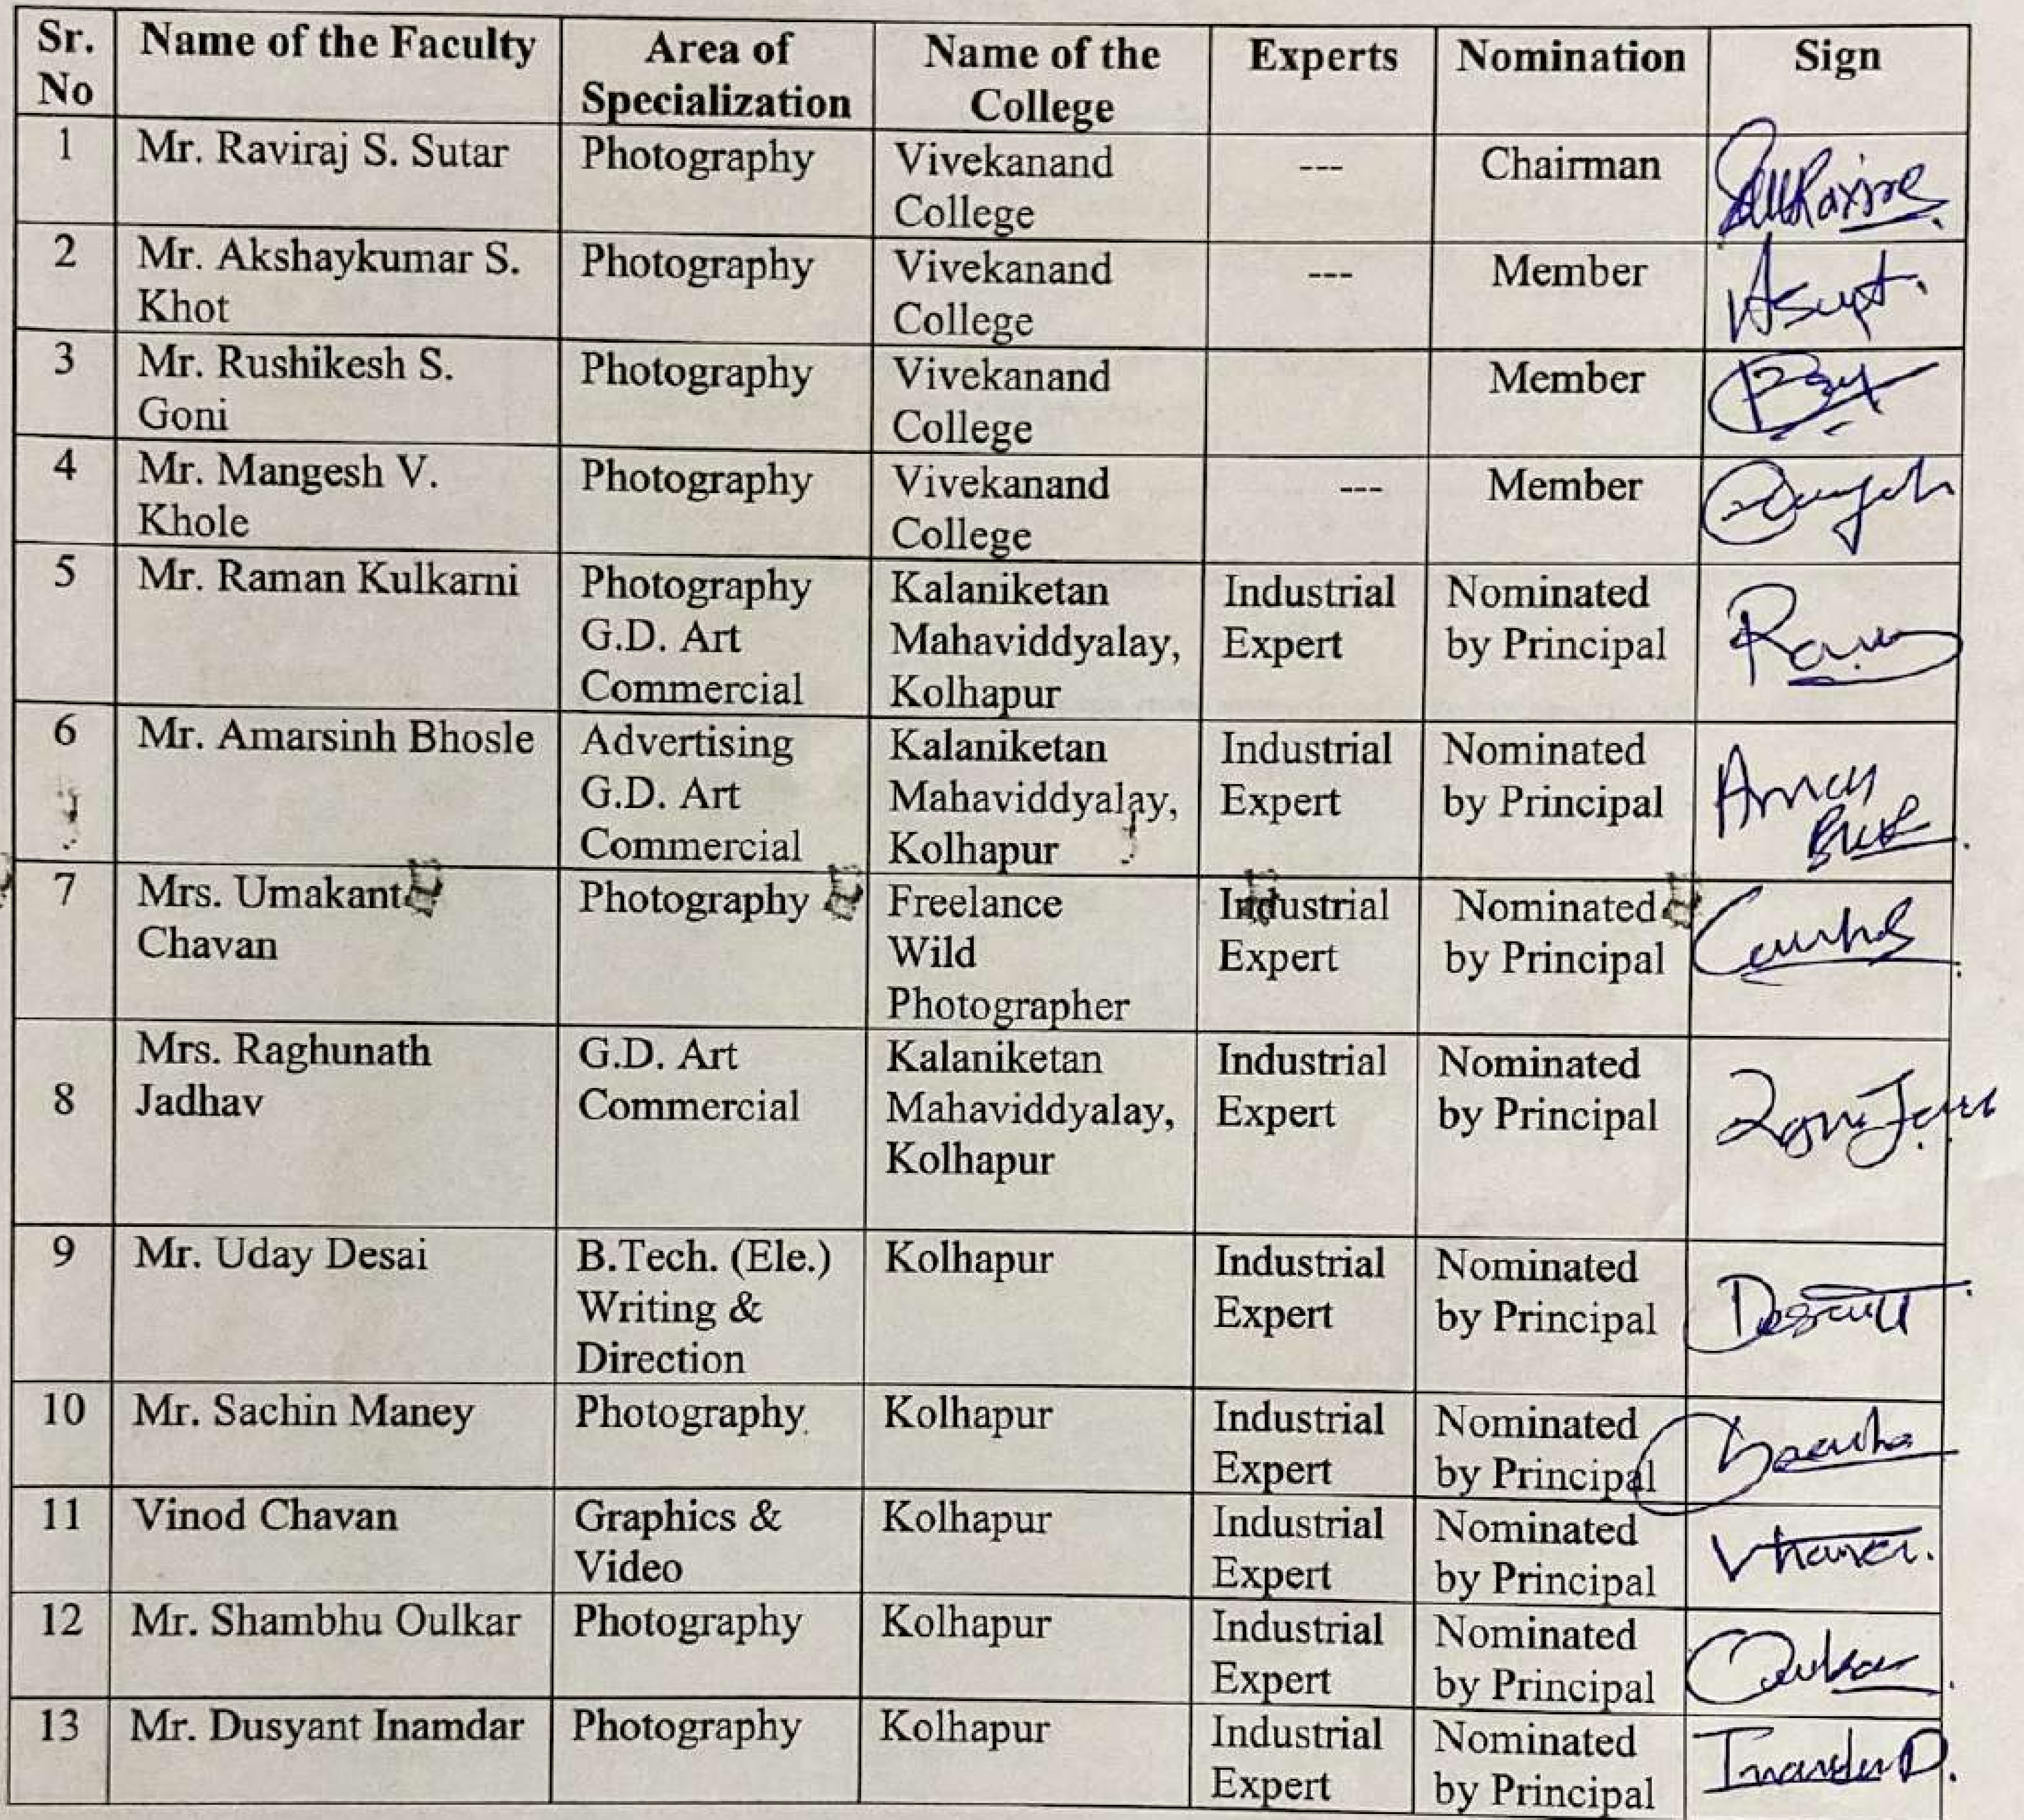 Sr. No | Name of the Faculty | Area of Specialization | Name of the College | Experts | Nomination | Sign
1 | Mr. Raviraj S. Sutar | Photography | Vivekanand College | --- | Chairman |
2 | Mr. Akshaykumar S. Khot | Photography | Vivekanand College | --- | Member |
3 | Mr. Rushikesh S. Goni | Photography | Vivekanand College | | Member |
4 | Mr. Mangesh V. Khole | Photography | Vivekanand College | --- | Member |
5 | Mr. Raman Kulkarni | Photography G.D. Art Commercial | Kalaniketan Mahaviddyalay, Kolhapur | Industrial Expert | Nominated by Principal |
6 | Mr. Amarsinh Bhosle | Advertising G.D. Art Commercial | Kalaniketan Mahaviddyalay, Kolhapur | Industrial Expert | Nominated by Principal |
7 | Mrs. Umakant Chavan | Photography | Freelance Wild Photographer | Industrial Expert | Nominated by Principal |
8 | Mrs. Raghunath Jadhav | G.D. Art Commercial | Kalaniketan Mahaviddyalay, Kolhapur | Industrial Expert | Nominated by Principal |
9 | Mr. Uday Desai | B.Tech. (Ele.) Writing & Direction | Kolhapur | Industrial Expert | Nominated by Principal |
10 | Mr. Sachin Maney | Photography | Kolhapur | Industrial Expert | Nominated by Principal |
11 | Vinod Chavan | Graphics & Video | Kolhapur | Industrial Expert | Nominated by Principal |
12 | Mr. Shambhu Oulkar | Photography | Kolhapur | Industrial Expert | Nominated by Principal |
13 | Mr. Dusyant Inamdar | Photography | Kolhapur | Industrial Expert | Nominated by Principal |